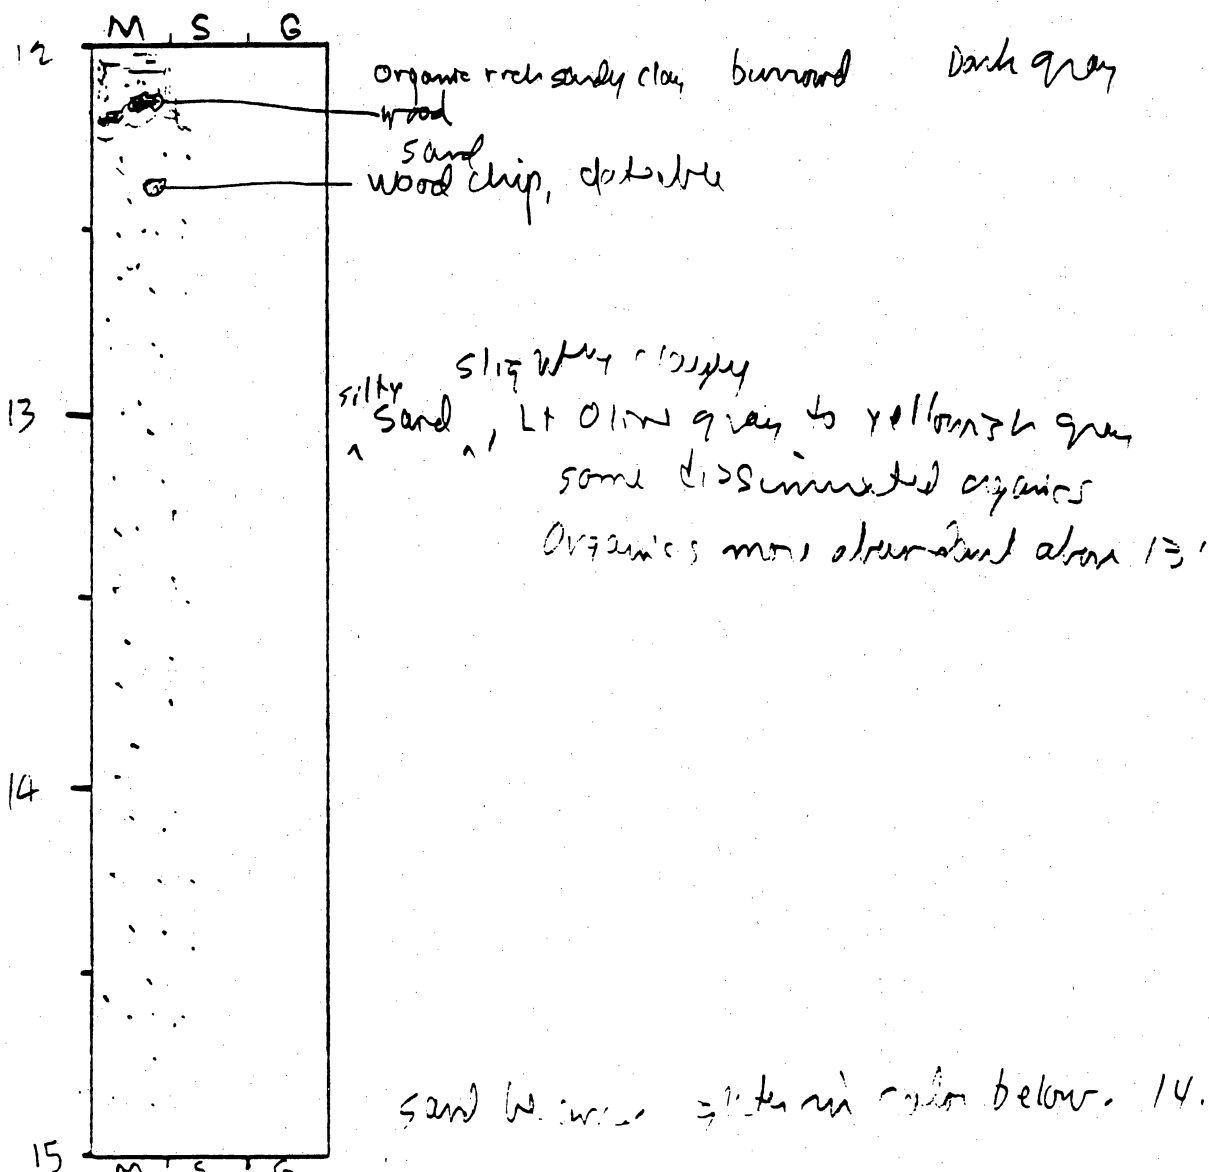 M S G
12
organic rich sandy clay burrowed Dark gray
wood
sand
wood chip, datable
slightly clayey
silty
13
sand , Lt Olive gray to yellowish gray
some disseminated organics
Organics more abundant above 13'
14
sand in color below 14.
15
M S G